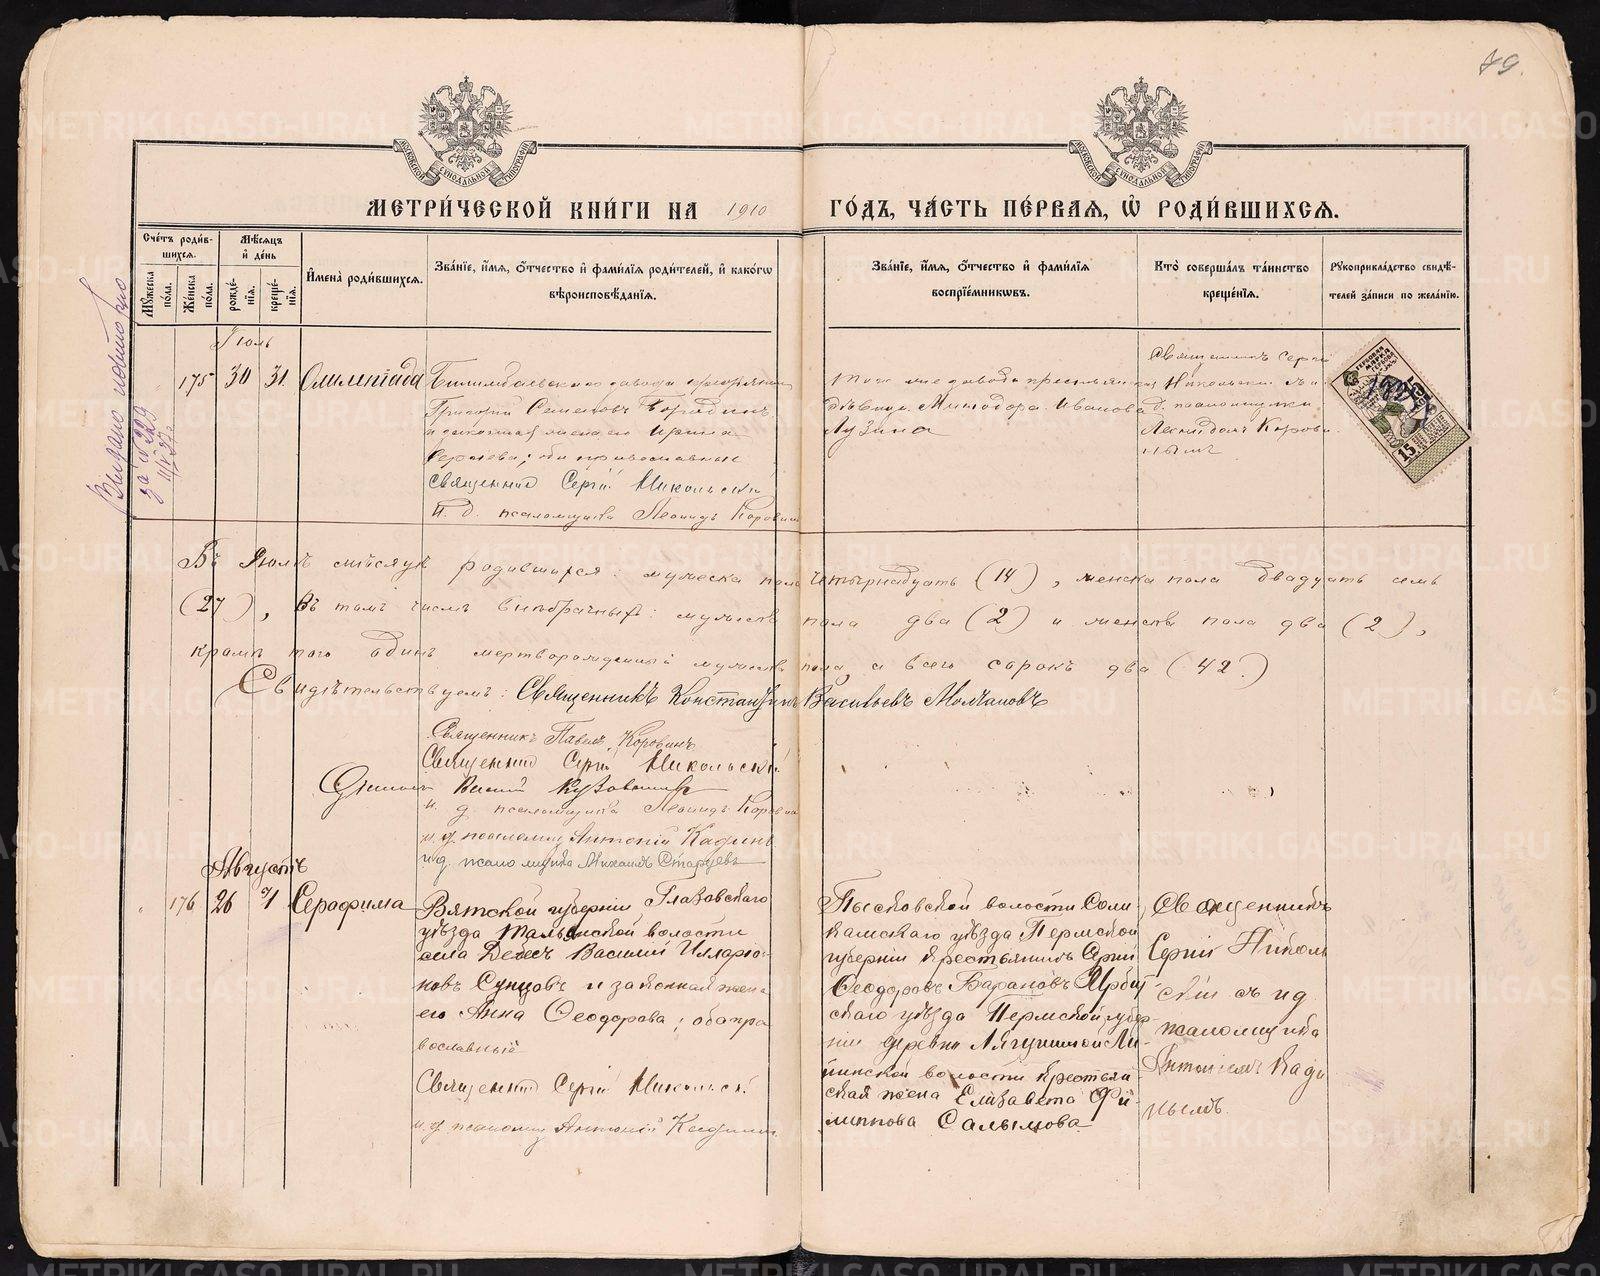 79.
МЕТРИ́ЧЕСКОЙ КНИ́ГИ НА 1910 ГО́ДЪ, ЧА́СТЬ ПЕ́РВАЯ, Ѡ҆ РОДИ́ВШИХСЯ.
Сче́тъ роди́в-
шихся.
Мꙋ́жеска пола.
Же́нска пола.
Мѣ́сяцъ
и҆ де́нь
рожде́-
нїя.
креще́-
нїя.
И҆мена̀ роди́вшихся.
Зва́нїе, и҆́мя, ѻ҆́тчество и҆ фами́лїя роди́телей, и҆ како́гѡ
вѣроисповѣ́данїя.
Зва́нїе, и҆́мя, ѻ҆́тчество и҆ фами́лїя
воспрїе́мникѡвъ.
Кто̀ соверша́лъ та́инство
креще́нїя.
Рꙋкоприкла́дство свидѣ́-
телей за́писи по жела́нїю.
Выдано повторно
за № 229
Іюль
175 30 31 Олимпіада
Билимбаевскаго завода крестьянинъ
Григорій Семеновъ Бородинъ
и законная жена его Ирина
Сергѣева; оба православные
Священникъ Сергій Никольскій
и. д. псаломщика Леонидъ Коровинъ
того же завода крестьянская
дѣвица Минодора Иванова
Лузина
Священникъ Сергій
Никольскій съ и.
д. псаломщика
Леонидомъ Корови-
нымъ
Въ Іюлѣ мѣсяцѣ родившихся: мужеска пола четырнадцать (14), женска пола двадцать семь
(27), въ томъ числѣ внѣбрачныхъ: мужеска пола два (2) и женска пола два (2),
кромѣ того одинъ мертворожденный мужеска пола, а всего сорокъ два (42.)
Свидѣтельствуемъ: Священникъ Константинъ Васильевъ Молчановъ
Священникъ Павелъ Коровинъ
Священникъ Сергій Никольскій
и. д. псаломщика Леонидъ Коровинъ
и. д. псаломщ. Антоній Кадинъ
и. д. псаломщика Михаилъ Старцевъ
Августъ
176 26 1 Серафима
Вятской губерніи Глазовскаго
уѣзда волости
села Василій Илларіо-
новъ Сунцовъ и законная жена
его Анна Ѳеодорова; оба пра
вославные
Священникъ Сергій Никольскій
и. д. псаломщ. Антоній Кадинъ
Пысковской волости Соли
камскаго уѣзда Пермской
губерніи крестьянинъ Сергій
Ѳеодоровъ Барановъ Ирбит
скаго уѣзда Пермской губер-
ніи деревни Лягушиной
волости крестьян
ская жена Елизавета Фи-
липпова Салымова
Священникъ
Сергій Николь
скій съ и д
псаломщика
Антоніемъ Кади
нымъ.